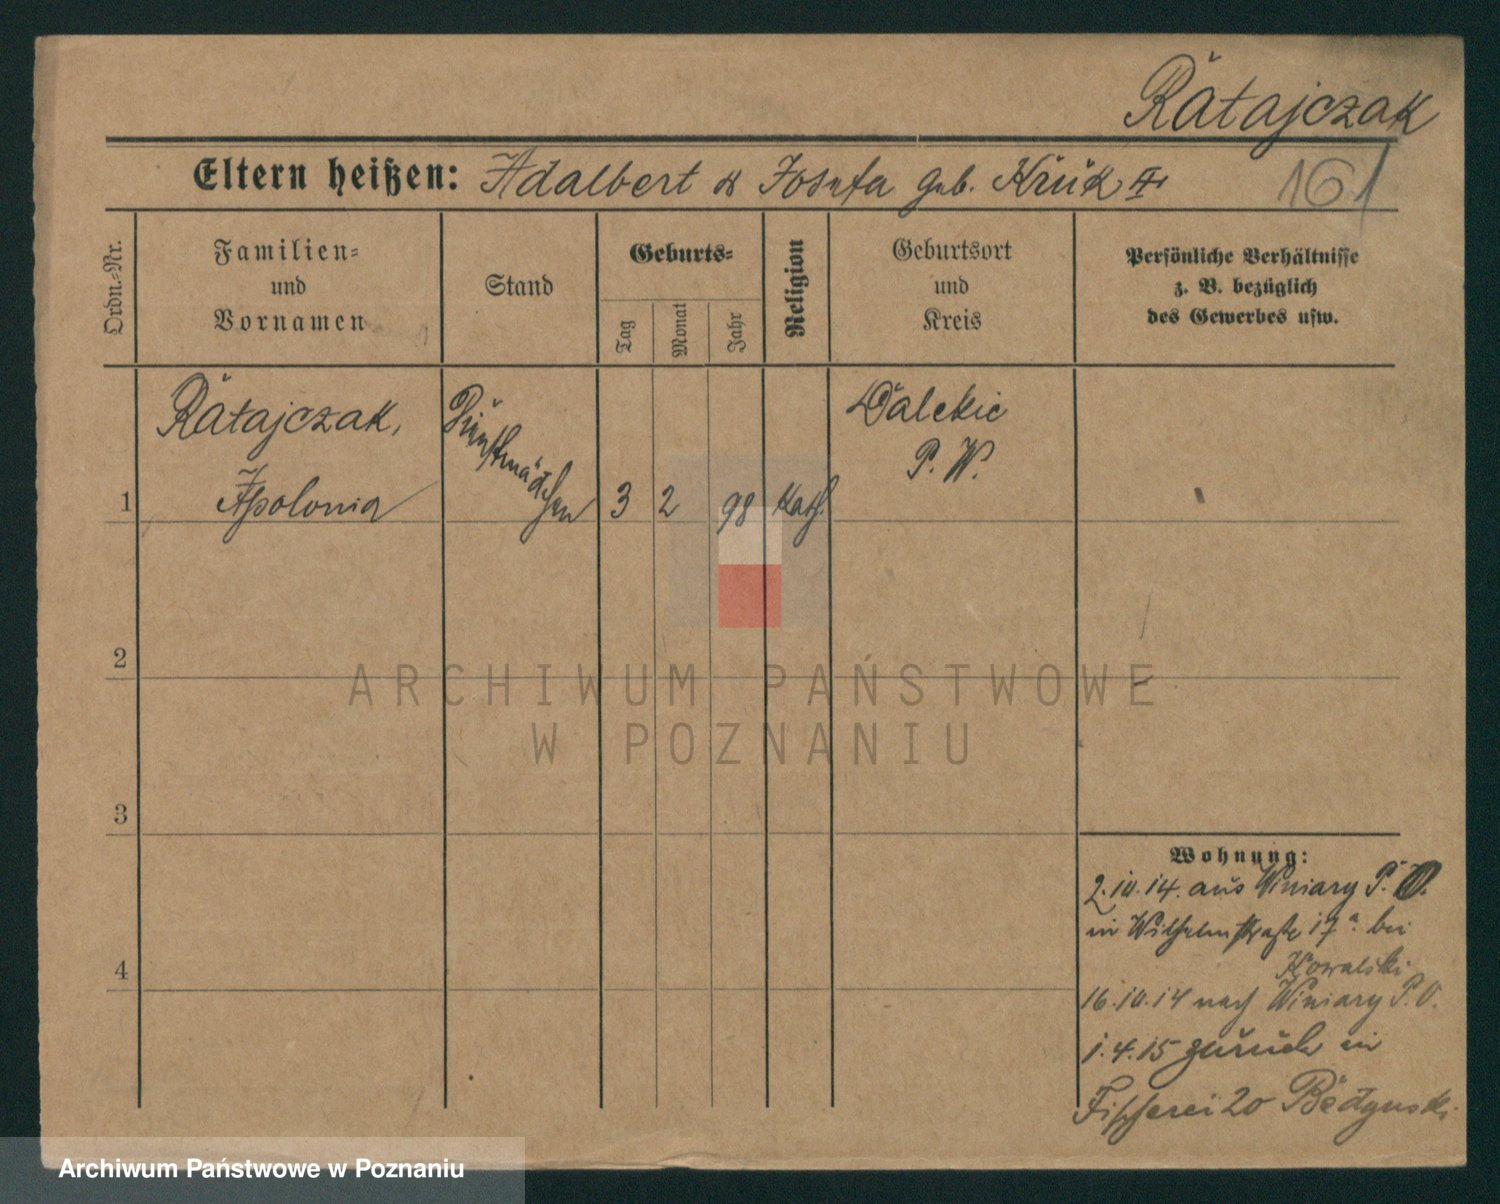 Ratajczak
Eltern heißen: Adalbert & Josefa geb. Kruk
161
Ordn.=Nr.
Familien=
und
Vornamen
Stand
Geburts=
Tag
Monat
Jahr
Religion
Geburtsort
und
Kreis
Persönliche Verhältnisse
z. B. bezüglich
des Gewerbes usw.
1
Ratajczak,
Apolonia
Dienstmädchen
3
2
98
Kath.
Dalekie
P. W.
2
3
4
Wohnung:
2.10.14. aus Winiary P. O.
in Wilhelmstraße 17a bei
Kowalski
16.10.14 nach Winiary P. O.
1.4.15 zurück in
Fischerei 20
ARCHIWUM PAŃSTWOWE
W POZNANIU
Archiwum Państwowe w Poznaniu